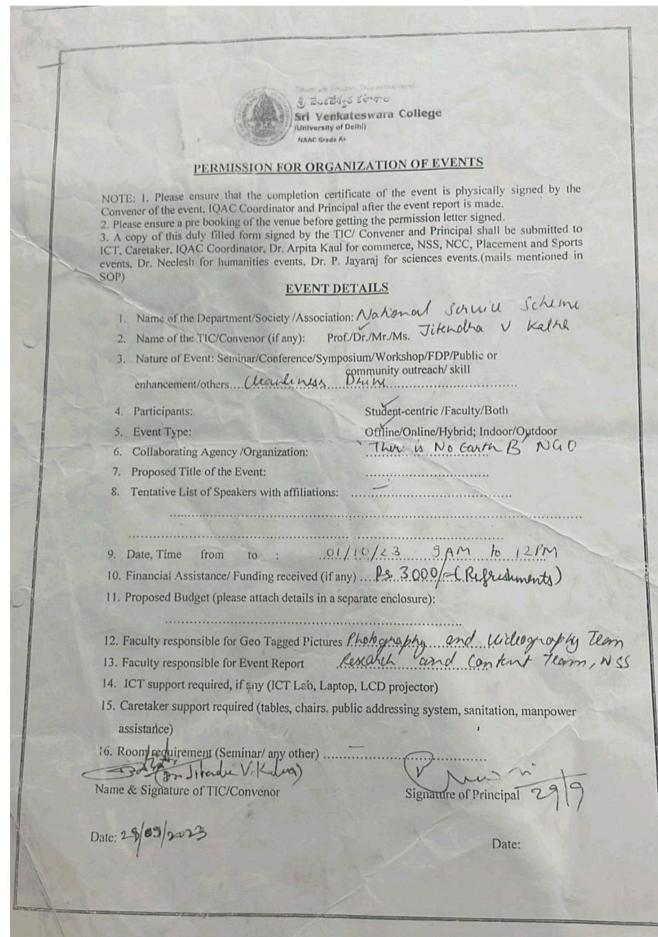 శ్రీ వేంకటేశ్వర కళాశాల
Sri Venkateswara College
(University of Delhi)
NAAC Grade A+
PERMISSION FOR ORGANIZATION OF EVENTS
NOTE: 1. Please ensure that the completion certificate of the event is physically signed by the
Convener of the event, IQAC Coordinator and Principal after the event report is made.
2. Please ensure a pre booking of the venue before getting the permission letter signed.
3. A copy of this duly filled form signed by the TIC/ Convener and Principal shall be submitted to
ICT, Caretaker, IQAC Coordinator, Dr. Arpita Kaul for commerce, NSS, NCC, Placement and Sports
events, Dr. Neelesh for humanities events, Dr. P. Jayaraj for sciences events.(mails mentioned in
SOP)
EVENT DETAILS
1. Name of the Department/Society /Association: National Service Scheme
2. Name of the TIC/Convenor (if any): Prof./Dr./Mr./Ms. Jitendra V Kalra
3. Nature of Event: Seminar/Conference/Symposium/Workshop/FDP/Public or
community outreach/ skill
enhancement/others.... Cleanliness Drive
4. Participants: Student-centric /Faculty/Both
5. Event Type: Offline/Online/Hybrid; Indoor/Outdoor
6. Collaborating Agency /Organization: There is No Earth B NGO
7. Proposed Title of the Event:
8. Tentative List of Speakers with affiliations: —
9. Date, Time from to : 01/10/23 9AM to 12PM
10. Financial Assistance/ Funding received (if any) .... Rs 3000/- (Refreshments)
11. Proposed Budget (please attach details in a separate enclosure):
12. Faculty responsible for Geo Tagged Pictures Photography and Videography Team
13. Faculty responsible for Event Report Research and Content Team, NSS
14. ICT support required, if any (ICT Lab, Laptop, LCD projector)
15. Caretaker support required (tables, chairs, public addressing system, sanitation, manpower
assistance)
16. Room requirement (Seminar/ any other) —
Name & Signature of TIC/Convenor
Signature of Principal 29/9
Date: 29/09/2023
Date: